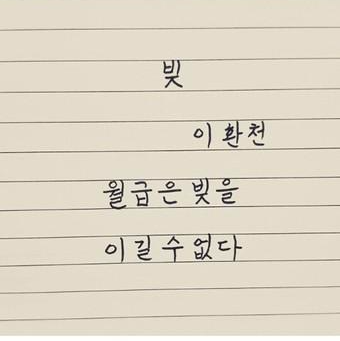 빚
이환천
월급은 빚을
이길 수 없다